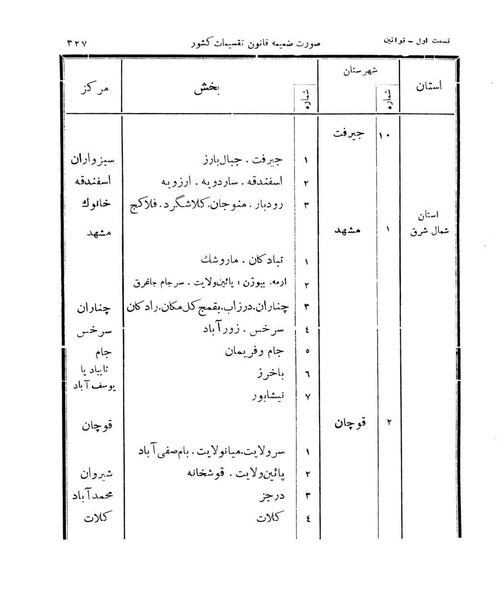 قسمت اول - قوانین صورت ضمیمه قانون تقسیمات کشور ۳۲۷
استان شهرستان شماره بخش شماره مرکز
۱۰ جیرفت
۱ جیرفت . جبال‌بارز سبزواران
۲ اسفندقه . ساردویه . ارزویه اسفندقه
۳ رودبار . منوجان . کلاشگرد . فلاکج خانوك
استان شمال شرق ۱ مشهد مشهد
۱ تبادکان . ماروشك
۲ ارمه . بیوژن : پائین‌ولایت . سرجام جاغرق
۳ چناران . درزاب . بقمج گل‌مکان . رادکان چناران
٤ سرخس . زورآباد سرخس
٥ جام وفریمان جام
٦ باخرز تایباد یا یوسف آباد
۷ نیشابور
۲ قوچان قوچان
۱ سرولایت . میانولایت . بام‌صفی آباد
۲ پائین‌ولایت . قوشخانه شیروان
۳ درجز محمدآباد
٤ کلات کلات